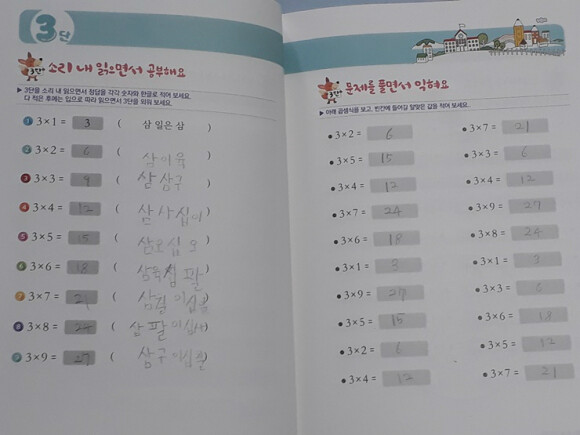 3단
소리 내 읽으면서 공부해요
▶ 3단을 소리 내 읽으면서 정답을 각각 숫자와 한글로 적어 보세요.
다 적은 후에는 입으로 따라 읽으면서 3단을 외워 보세요.
1 3×1 = 3 ( 삼 일은 삼 )
2 3×2 = 6 ( 삼이육 )
3 3×3 = 9 ( 삼삼구 )
4 3×4 = 12 ( 삼사십이 )
5 3×5 = 15 ( 삼오십오 )
6 3×6 = 18 ( 삼육십팔 )
7 3×7 = 21 ( 삼칠이십 )
8 3×8 = 24 ( 삼팔이십사 )
9 3×9 = 27 ( 삼구이십칠 )
3단
문제를 풀면서 익혀요
▶ 아래 곱셈식을 보고, 빈칸에 들어갈 알맞은 값을 적어 보세요.
• 3×2 = 6
• 3×5 = 15
• 3×4 = 12
• 3×7 = 24
• 3×6 = 18
• 3×1 = 3
• 3×9 = 27
• 3×5 = 15
• 3×2 = 6
• 3×4 = 12
• 3×7 = 21
• 3×3 = 6
• 3×4 = 12
• 3×9 = 27
• 3×8 = 24
• 3×1 = 3
• 3×3 = 6
• 3×6 = 18
• 3×5 = 12
• 3×7 = 21